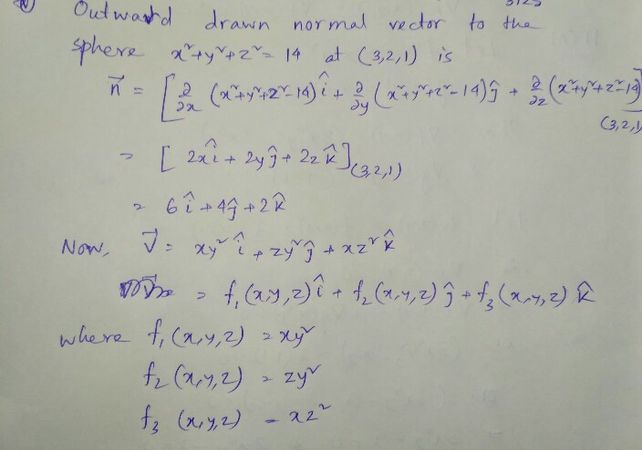 Outward drawn normal vector to the
sphere x²+y²+z² = 14 at (3,2,1) is
n⃗ = [∂/∂x (x²+y²+z²-14) î + ∂/∂y (x²+y²+z²-14) ĵ + ∂/∂z (x²+y²+z²-14)
(3,2,1)
= [2x î + 2y ĵ + 2z k̂](3,2,1)
= 6 î + 4 ĵ + 2 k̂
Now, V⃗ = xy² î + zy² ĵ + xz² k̂
= f₁(x,y,z) î + f₂(x,y,z) ĵ + f₃(x,y,z) k̂
where f₁(x,y,z) = xy²
f₂(x,y,z) = zy²
f₃(x,y,z) = xz²